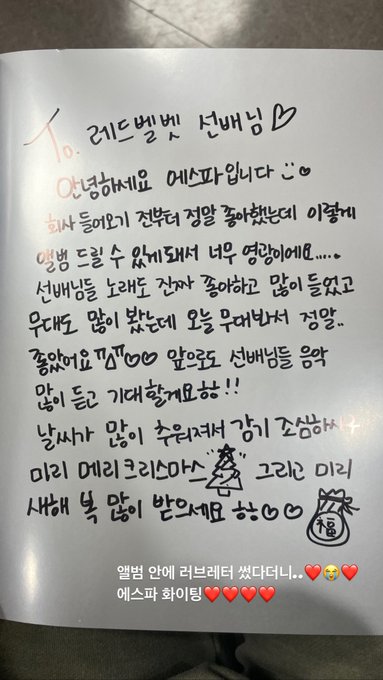 To. 레드벨벳 선배님♡
안녕하세요 에스파입니다 :)♡
회사 들어오기 전부터 정말 좋아했는데 이렇게
앨범 드릴 수 있게돼서 너무 영광이에요.....
선배님들 노래도 진짜 좋아하고 많이 들었고
무대도 많이 봤는데 오늘 무대봐서 정말..
좋았어요ㅠㅠ♡♡ 앞으로도 선배님들 음악
많이 듣고 기대할게요ㅎㅎ!!
날씨가 많이 추워져서 감기 조심하시구
미리 메리크리스마스 그리고 미리
새해 복 많이 받으세요 ㅎㅎ♡♡
福
앨범 안에 러브레터 썼다더니..❤️😭❤️
에스파 화이팅❤️❤️❤️❤️